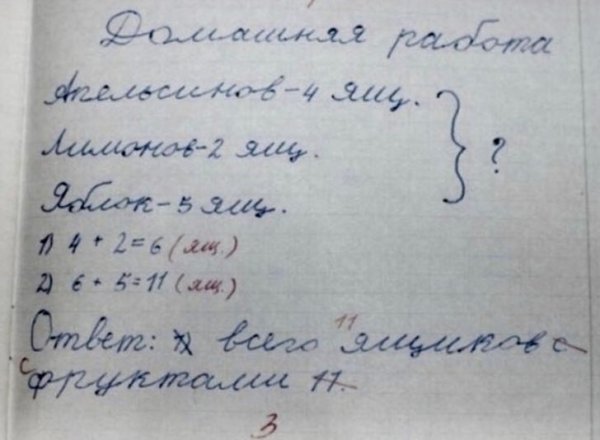 Домашняя работа
Апельсинов-4 ящ.
Лимонов-2 ящ. } ?
Яблок-5 ящ.
1) 4 + 2 = 6 (ящ.)
2) 6 + 5 = 11 (ящ.)
Ответ: всего 11 ящиков с
с фруктами 11.
3